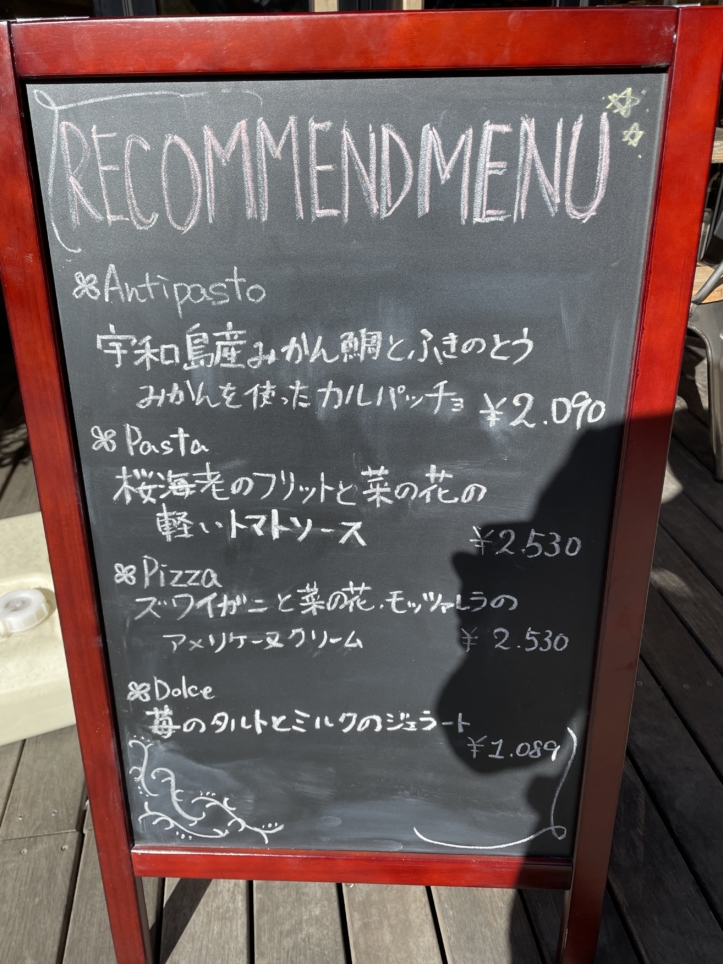 RECOMMENDMENU
Antipasto
宇和島産みかん鯛とふきのとう
みかんを使ったカルパッチョ ¥2.090
Pasta
桜海老のフリットと菜の花の
軽いトマトソース ¥2.530
Pizza
ズワイガニと菜の花.モッツァレラの
アメリケーヌクリーム ¥2.530
Dolce
苺のタルトとミルクのジェラート
¥1.089